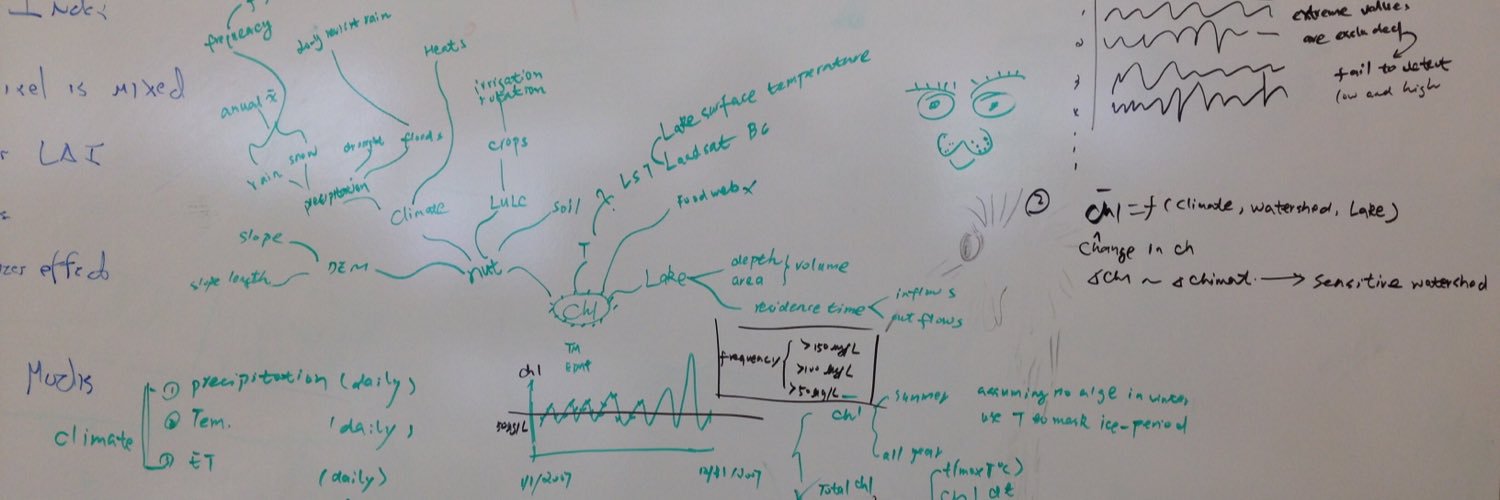 Index
frequency
Heats
irrigation
rotation
crops
LULC
soil
anual x̄
snow
rain
drought
floods
precipitation
Climate
slope
slope length
DEM
nut
T
LST
Lake surface temperature
Landsat B6
Food web x
Chl
Lake
depth
area
volume
residence time
inflows
out flows
is mixed
LAI
effect
Modis
climate
① precipitation (daily)
② Tem. (daily)
③ ET (daily)
TM
chl
1/1/2007
12/31/2007
frequency
>150 µg/L
>100 µg/L
>50 µg/L
chl
summer
all year
Total chl
assuming no alge in winter
use T to mark ice-period
f(max T°C)
chl dt
extreme values
are excluded
fail to detect
low and high
② chl = f (Climate, watershed, Lake)
Change in ch
→ Sensitive watershed